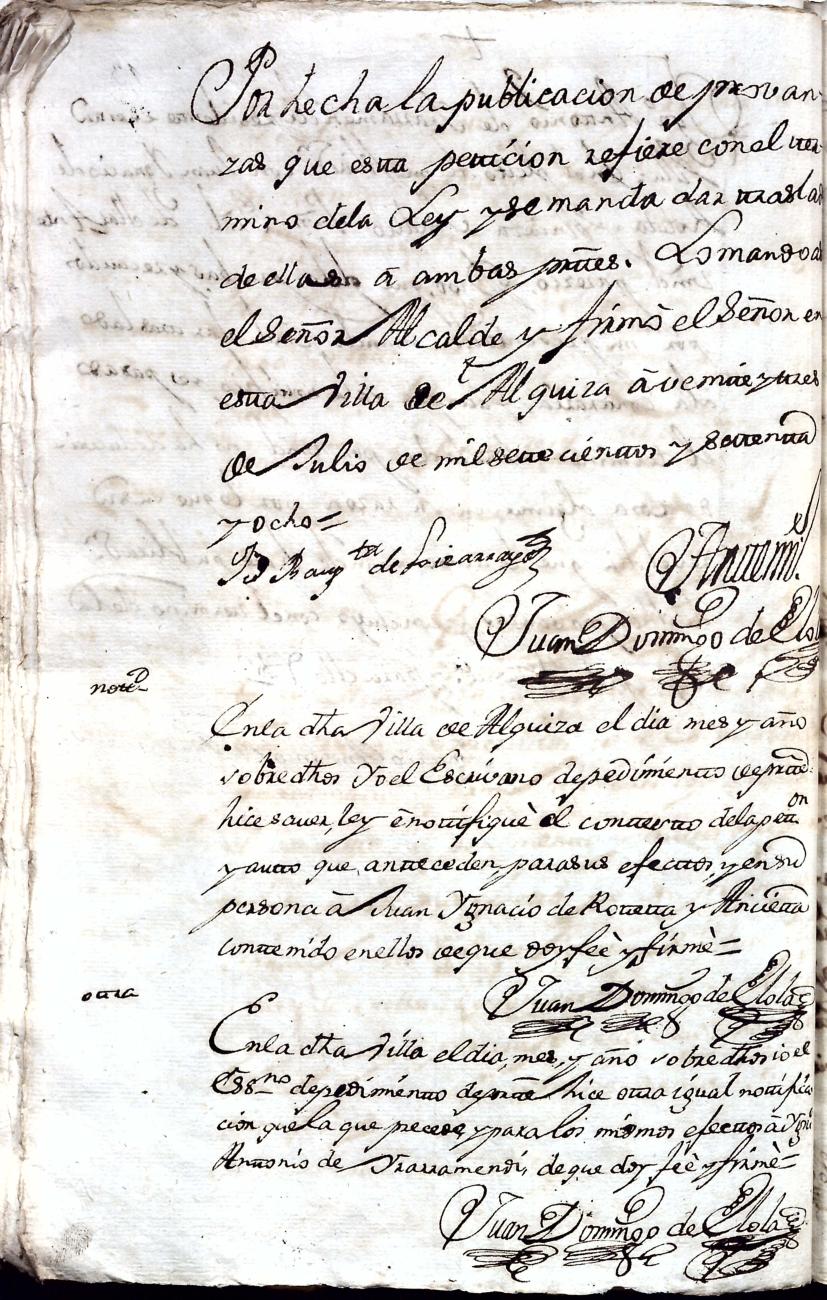 Por hecha la publicacion de provan-
zas que esta peticion refiere con el ter-
mino dela Ley y se manda dar traslad
de ellas a ambas prtes. Lo mando
el Señor Alcalde y firmò el Señor en
esta Villa de Alquiza à veinte y tres
de Julio de mil sete cientos y setenta
y ocho=
Antemi.
Juan Domingo de Elola
notn
En la dha Villa de Alquiza el dia mes y año
sobredhos Yo el Escrivano de pedimento de prte
hice saver, ley è notifiquè el contexto dela petton
y auto que anteceden, para sus efectos, y en su
persona à Juan Ygnacio de Roteta y Ancieta
contenido en ellos de que doy feè y firmè=
Juan Domingo de Elola
otra
En la dha Villa el dia, mes, y año sobredhos io el
Essno de pedimento de prte hice otra igual notifica
cion que la que precede, y para los mismos efectos à Ygn
Antonio de Yrarramendi, de que doy feè y firmè=
Juan Domingo de Elola